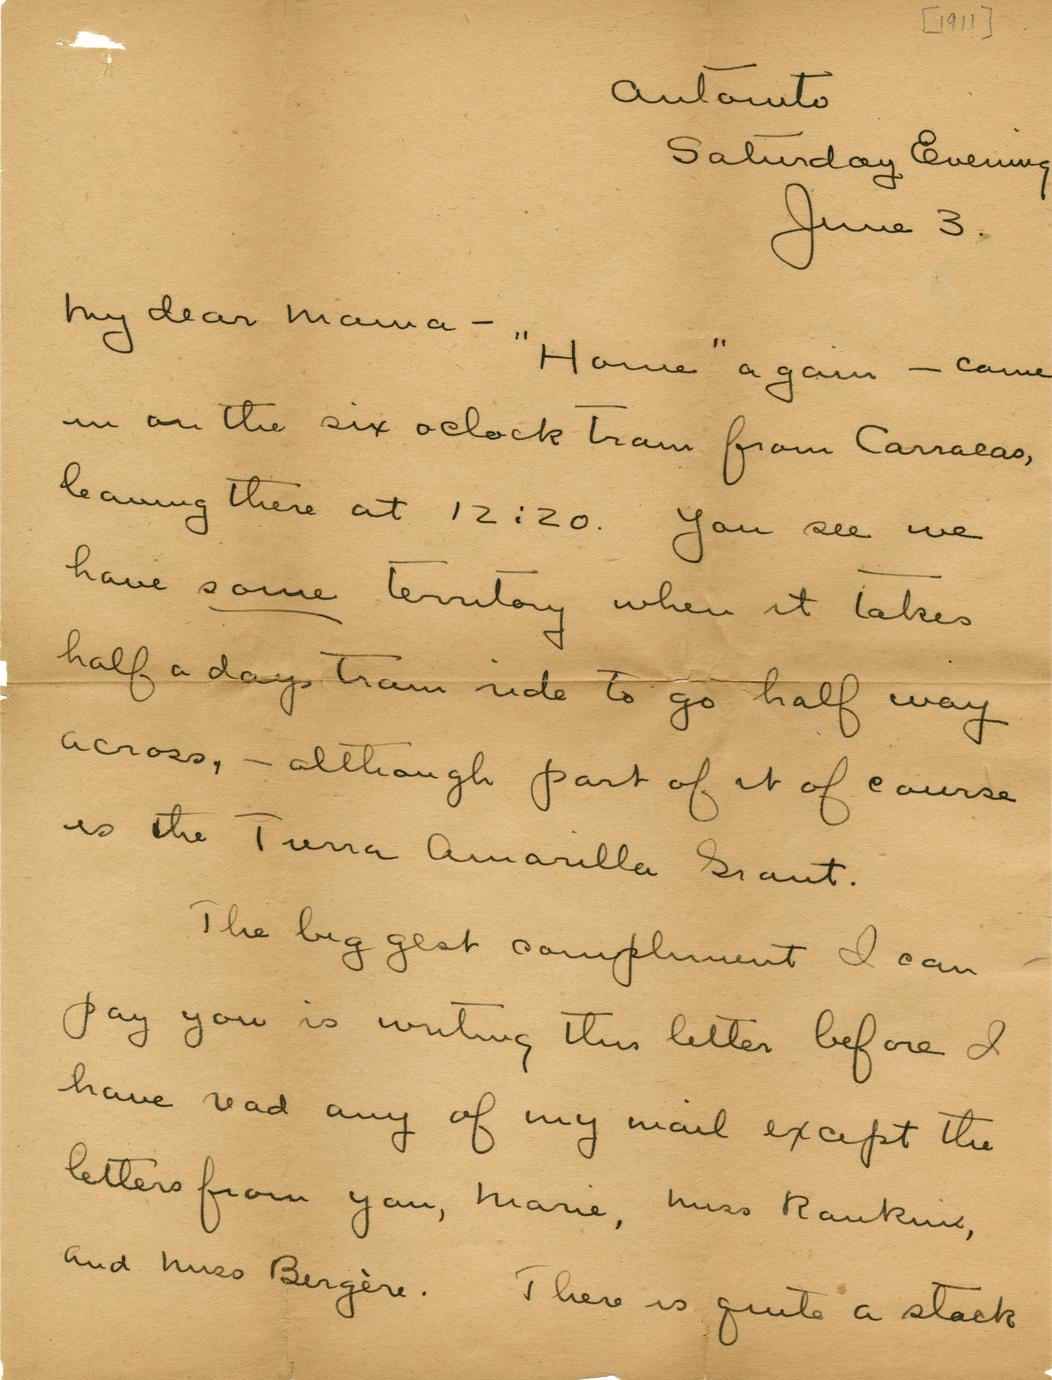 [1911]
Antonito
Saturday Evening
June 3.
My dear Mama —
"Home" again — came
in on the six oclock train from Carracas,
leaving there at 12:20. You see we
have some territory when it takes
half a days train ride to go half way
across, — although part of it of course
is the Tierra Amarilla Grant.
The biggest compliment I can
pay you is writing this letter before I
have read any of my mail except the
letters from you, Marie, Miss Rankin,
and Miss Bergère. There is quite a stack